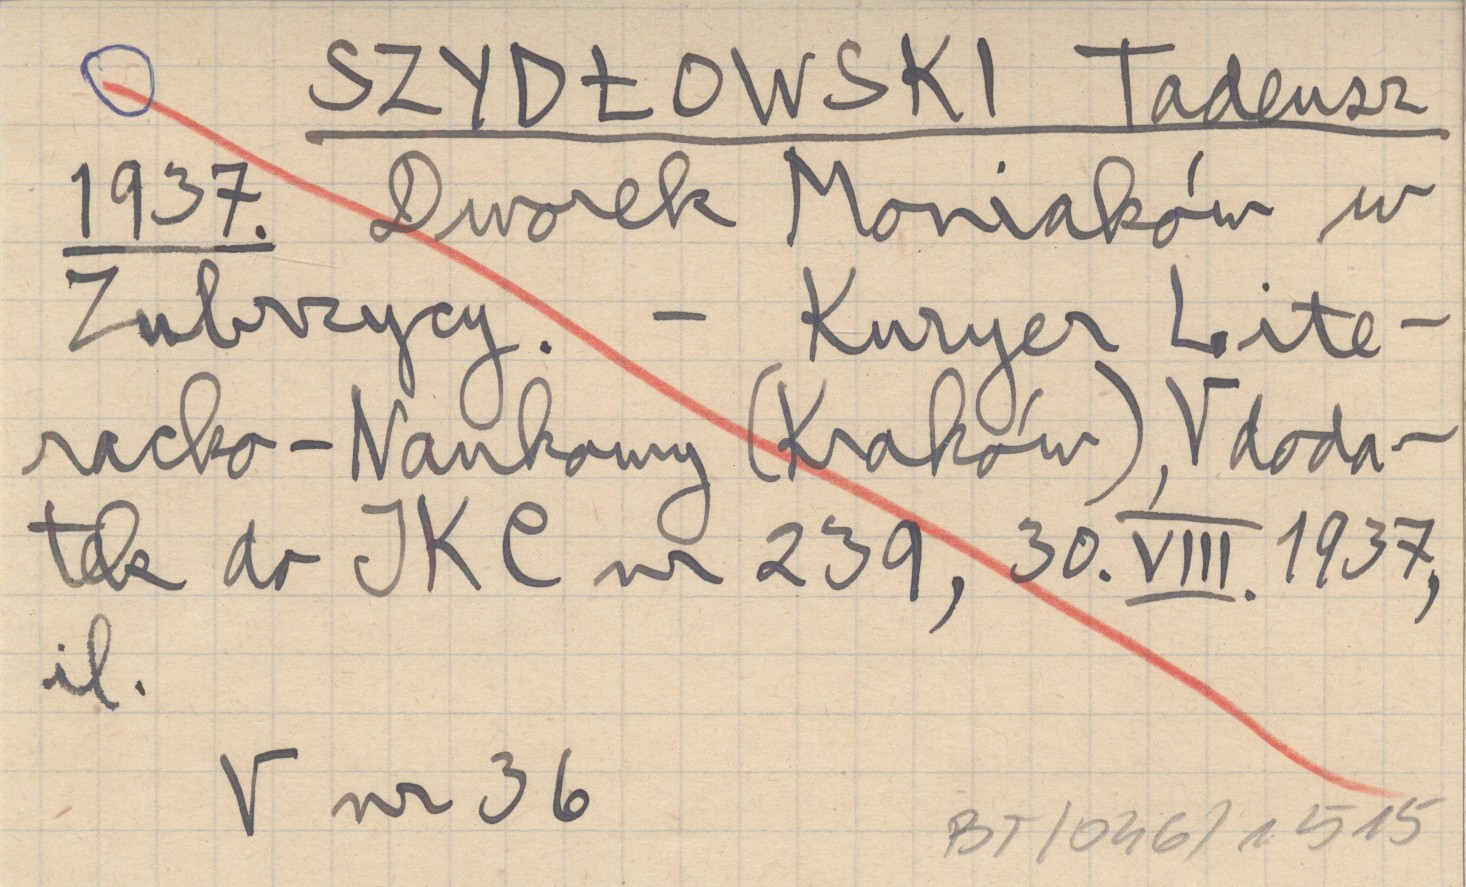 SZYDŁOWSKI Tadeusz
1937. Dworek Moniaków w
Zubrzycy. – Kuryer Lite-
racko-Naukowy (Kraków), V doda-
tek do IKC nr 239, 30.VIII.1937,
il.
V nr 36
BT/046/1515